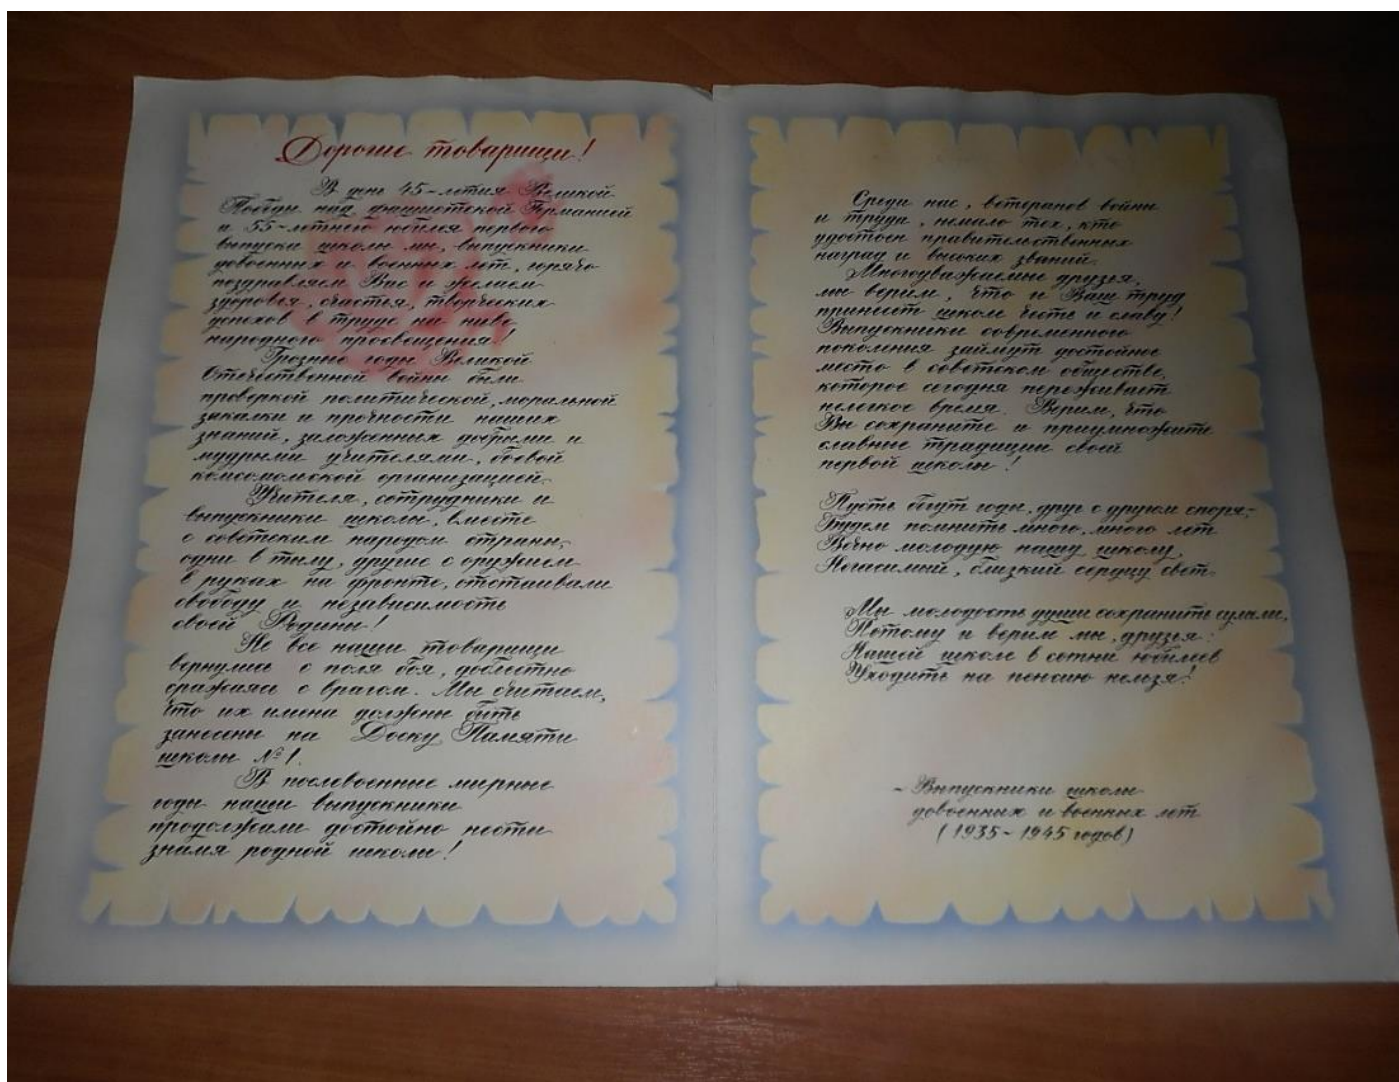 Дорогие товарищи!
В день 45-летия Великой
Победы над фашистской Германией
и 55-летнего юбилея первого
выпуска школы мы, выпускники
довоенных и военных лет, горячо
поздравляем Вас и желаем
здоровья, счастья, творческих
успехов в труде на ниве
народного просвещения!
Грозные годы Великой
Отечественной войны были
проверкой политической, моральной
закалки и прочности наших
знаний, заложенных добрыми и
мудрыми учителями, боевой
комсомольской организацией.
Учителя, сотрудники и
выпускники школы, вместе
с советским народом страны,
одни в тылу, другие с оружием
в руках на фронте, отстаивали
свободу и независимость
своей Родины!
Не все наши товарищи
вернулись с поля боя, доблестно
сражаясь с врагом. Мы считаем,
что их имена должны быть
занесены на Доску Памяти
школы № 1.
В послевоенные мирные
годы наши выпускники
продолжали достойно нести
знамя родной школы!
Среди нас, ветеранов войны
и труда, немало тех, кто
удостоен правительственных
наград и высоких званий.
Многоуважаемые друзья,
мы верим, что и Ваш труд
принесёт школе честь и славу!
Выпускники современного
поколения займут достойное
место в советском обществе,
которое сегодня переживает
нелегкое время. Верим, что
Вы сохраните и приумножите
славные традиции своей
первой школы!
Пусть бегут годы, друг с другом споря,-
Будем помнить много, много лет
Вечно молодую нашу школу,
Негасимый, близкий сердцу свет.
Мы молодость души сохранить сумели,
Потому и верим мы, друзья:
Нашей школе в сотни юбилеев
Уходить на пенсию нельзя!
- Выпускники школы
довоенных и военных лет
(1935-1945 годов)